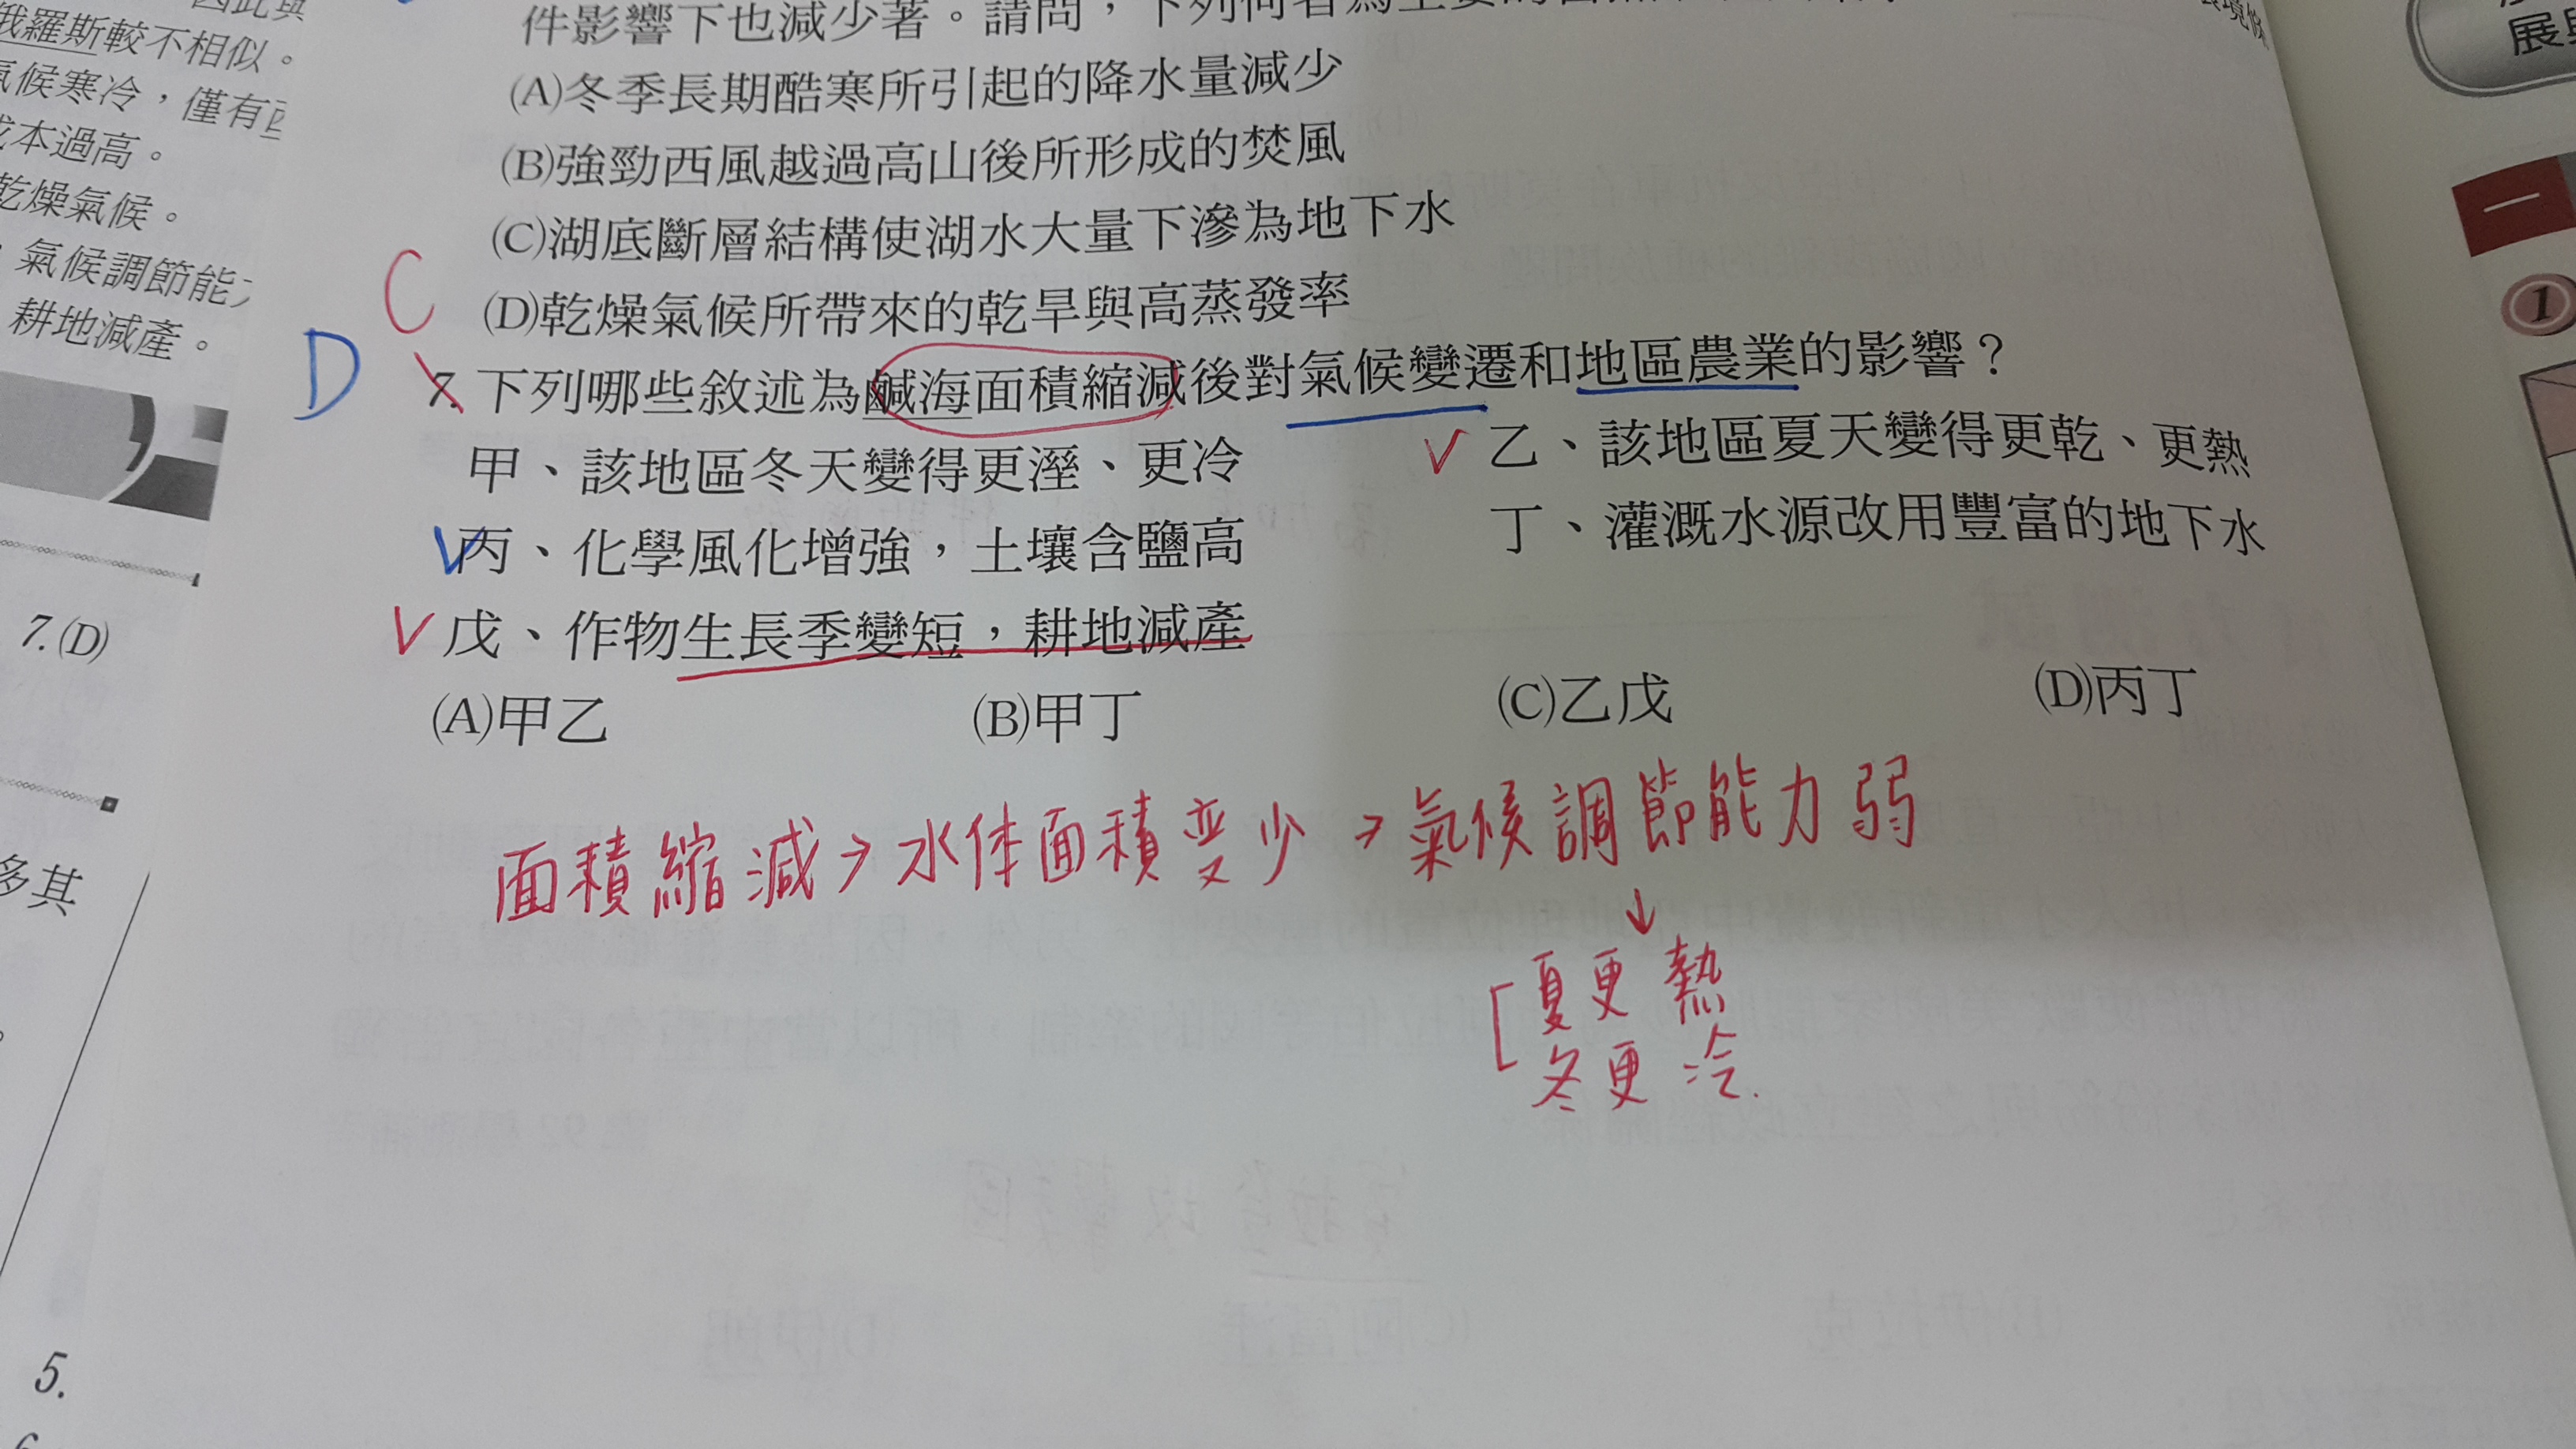 俄羅斯較不相似。
氣候寒冷，僅有
成本過高。
乾燥氣候。
，氣候調節能力
耕地減產。
7.(D)
多其
5.
件影響下也減少著。請問，下列何者為主要的自然
(A)冬季長期酷寒所引起的降水量減少
(B)強勁西風越過高山後所形成的焚風
(C)湖底斷層結構使湖水大量下滲為地下水
(D)乾燥氣候所帶來的乾旱與高蒸發率
C
D
7. 下列哪些敘述為鹹海面積縮減後對氣候變遷和地區農業的影響？
甲、該地區冬天變得更溼、更冷
V 乙、該地區夏天變得更乾、更熱
V 丙、化學風化增強，土壤含鹽高
丁、灌溉水源改用豐富的地下水
V 戊、作物生長季變短，耕地減產
(A)甲乙 (B)甲丁 (C)乙戊 (D)丙丁
面積縮減→水体面積变少→氣候調節能力弱
↓
夏更熱
冬更冷.
展
一
1